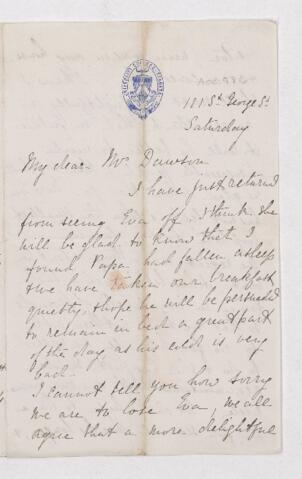 111 St George St
Saturday
My dear Mr Dawson
I have just returned
from seeing Eva off. I think she
will be glad to know that I
found Papa had fallen asleep
& we have taken our breakfast
quietly. I hope he will be persuaded
to remain in bed a great part
of the day as his cold is very
bad.
I cannot tell you how sorry
we are to lose Eva, we all
agree that a more delightful